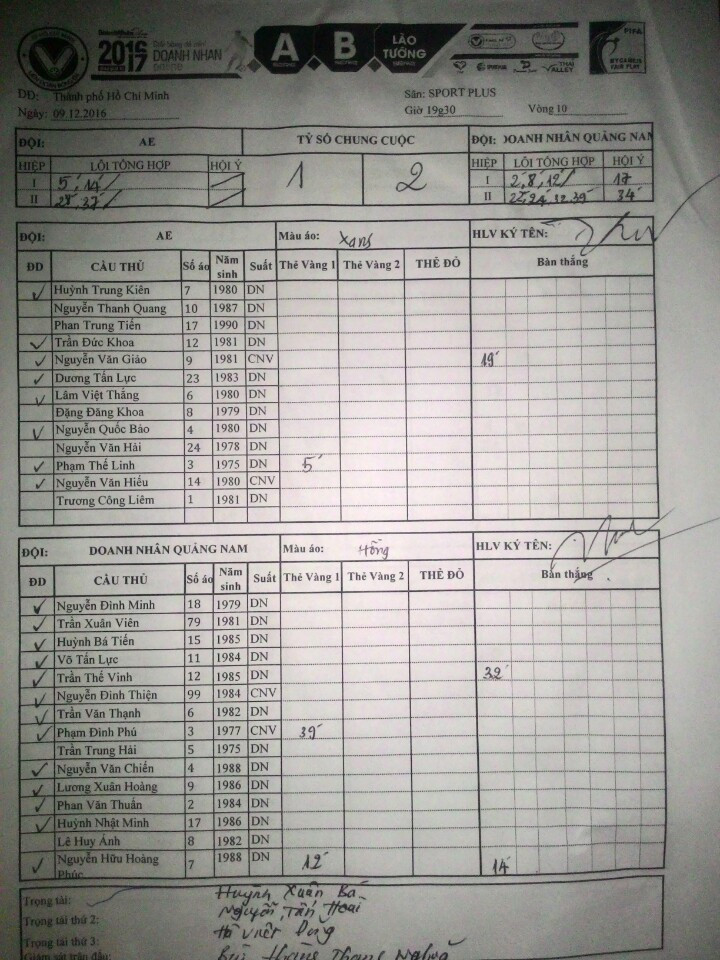 2016 2017 DOANH NHÂN A B LÃO TƯỚNG
FIFA
THAI VALLEY
MY GAME IS FAIR PLAY
DD: Thành phố Hồ Chí Minh Sân: SPORT PLUS
Ngày: 09.12.2016 Giờ 19g30 Vòng 10
ĐỘI: AE TỶ SỐ CHUNG CUỘC ĐỘI: DOANH NHÂN QUẢNG NAM
HIỆP LỖI TỔNG HỢP HỘI Ý 1 2 HIỆP LỖI TỔNG HỢP HỘI Ý
I 5', 14' I 2', 8', 12' 17
II 28', 37' II 22, 24, 32, 39' 34'
ĐỘI: AE Màu áo: Xanh HLV KÝ TÊN:
DD CẦU THỦ Số áo Năm sinh Suất Thẻ Vàng 1 Thẻ Vàng 2 THẺ ĐỎ Bàn thắng
✓ Huỳnh Trung Kiên 7 1980 DN
Nguyễn Thanh Quang 10 1987 DN
Phan Trung Tiến 17 1990 DN
✓ Trần Đức Khoa 12 1981 DN
✓ Nguyễn Văn Giáo 9 1981 CNV 19'
✓ Dương Tấn Lực 23 1983 DN
✓ Lâm Việt Thắng 6 1980 DN
Đặng Đăng Khoa 8 1979 DN
✓ Nguyễn Quốc Bảo 4 1980 DN
Nguyễn Văn Hải 24 1978 DN
✓ Phạm Thế Linh 3 1975 DN 5'
✓ Nguyễn Văn Hiếu 14 1980 CNV
Trương Công Liêm 1 1981 DN
ĐỘI: DOANH NHÂN QUẢNG NAM Màu áo: Hồng HLV KÝ TÊN:
DD CẦU THỦ Số áo Năm sinh Suất Thẻ Vàng 1 Thẻ Vàng 2 THẺ ĐỎ Bàn thắng
✓ Nguyễn Đình Minh 18 1979 DN
✓ Trần Xuân Viên 79 1981 DN
✓ Huỳnh Bá Tiến 15 1985 DN
✓ Võ Tấn Lực 11 1984 DN
✓ Trần Thế Vinh 12 1985 DN 32'
✓ Nguyễn Đình Thiện 99 1984 CNV
✓ Trần Văn Thạnh 6 1982 DN
✓ Phạm Đình Phú 3 1977 CNV 39'
Trần Trung Hải 5 1975 DN
✓ Nguyễn Văn Chiến 4 1988 DN
✓ Lương Xuân Hoàng 9 1986 DN
✓ Phan Văn Thuấn 2 1984 DN
✓ Huỳnh Nhật Minh 17 1986 DN
Lê Huy Ánh 8 1982 DN
✓ Nguyễn Hữu Hoàng Phúc 7 1988 DN 12' 14'
Trọng tài: Huỳnh Xuân Bá
Trọng tài thứ 2: Nguyễn Tấn Hoài
Trọng tài thứ 3: Hồ Việt Dũng
Giám sát trận đấu: Bùi Hoàng Thang Nghĩa